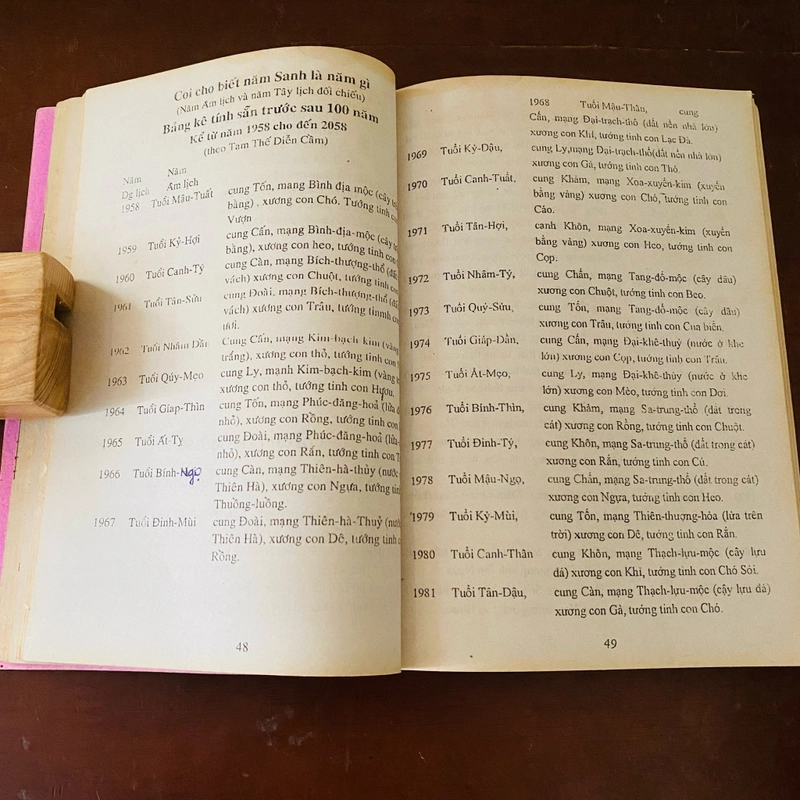 Coi cho biết năm Sanh là năm gì
(Năm Âm lịch và năm Tây lịch đối chiếu)
Bảng kê tính sẵn trước sau 100 năm
Kể từ năm 1958 cho đến 2058
(theo Tam Thế Diễn Cầm)
Năm Năm
Dg lịch Âm lịch
1958 Tuổi Mậu-Tuất cung Tốn, mang Bình địa mộc (cây
bằng) , xương con Chó. Tướng tinh
Vượn
1959 Tuổi Kỷ-Hợi cung Cấn, mạng Bình-địa-mộc (cây
bằng), xương con heo, tướng tinh
1960 Tuổi Canh-Tý cung Càn, mạng Bích-thượng-thổ
vách) xương con Chuột, tướng tinh
1961 Tuổi Tân-Sửu cung Đoài, mạng Bích-thượng-thổ
vách) xương con Trâu, tướng
ươi.
1962 Tuổi Nhâm Dần Cung Cấn, mạng Kim-bạch kim (vàng
trắng), xương con thỏ, tướng tinh con
1963 Tuổi Qúy-Mẹo cung Ly, mạnh Kim-bạch-kim (vàng
xương con thỏ, tướng tinh con Hươu.
1964 Tuổi Gíap-Thìn cung Tốn, mạng Phúc-đăng-hoả (lửa
nhỏ), xương con Rồng, tướng tinh con
1965 Tuổi Ất-Tỵ cung Đoài, mạng Phúc-đăng-hoả (lửa
nhỏ), xương con Rắn, tướng tinh
1966 Tuổi Bính-Ngọ cung Càn, mạng Thiên-hà-thủy (nước
Thiên Hà), xương con Ngựa, tướng tinh
Thuồng-luồng.
1967 Tuổi Đinh-Mùi cung Đoài, mạng Thiên-hà-Thuỷ
Thiên Hà), xương con Dê, tướng tinh
Rồng.
48
1968 Tuổi Mậu-Thân, cung
Cấn, mạng Đại-trạch-thổ (đất nền nhà lớn)
xương con Khỉ, tướng tinh con Lạc Đà.
1969 Tuổi Kỷ-Dậu, cung Ly,mạng Đại-trạch-thổ(đất nền nhà lớn)
xương con Gà, tướng tinh con Thỏ.
1970 Tuổi Canh-Tuất, cung Khảm, mạng Xoa-xuyến-kim (xuyến
bằng vàng) xương con Chó, tướng tinh con
Cáo.
1971 Tuổi Tân-Hợi, canh Khôn, mạng Xoa-xuyến-kim (xuyến
bằng vàng) xương con Heo, tướng tinh con
Cọp.
1972 Tuổi Nhâm-Tý, cung Chấn, mạng Tang-đố-mộc (cây dâu)
xương con Chuột, tướng tinh con Beo.
1973 Tuổi Quý-Sửu, cung Tốn, mạng Tang-đố-mộc (cây dâu)
xương con Trâu, tướng tinh con Cua biển.
1974 Tuổi Giáp-Dần, cung Cấn, mạng Đại-khê-thủy (nước ở khe
lớn) xương con Cọp, tướng tinh con Trâu.
1975 Tuổi Ất-Mẹo, cung Ly, mạng Đại-khê-thủy (nước ở khe
lớn) xương con Mèo, tướng tinh con Dơi.
1976 Tuổi Bính-Thìn, cung Khảm, mạng Sa-trung-thổ (đất trong
cát) xương con Rồng, tướng tinh con Chuột.
1977 Tuổi Đinh-Tỵ, cung Khôn, mạng Sa-trung-thổ (đất trong cát)
xương con Rắn, tướng tinh con Cú.
1978 Tuổi Mậu-Ngọ, cung Chấn, mạng Sa-trung-thổ (đất trong cát)
xương con Ngựa, tướng tinh con Heo.
1979 Tuổi Kỷ-Mùi, cung Tốn, mạng Thiên-thượng-hỏa (lửa trên
trời) xương con Dê, tướng tinh con Rắn.
1980 Tuổi Canh-Thân cung Khôn, mạng Thạch-lựu-mộc (cây lựu
đá) xương con Khỉ, tướng tinh con Chó Sói.
1981 Tuổi Tân-Dậu, cung Càn, mạng Thạch-lựu-mộc (cậy lựu đá)
xương con Gà, tướng tinh con Chó.
49